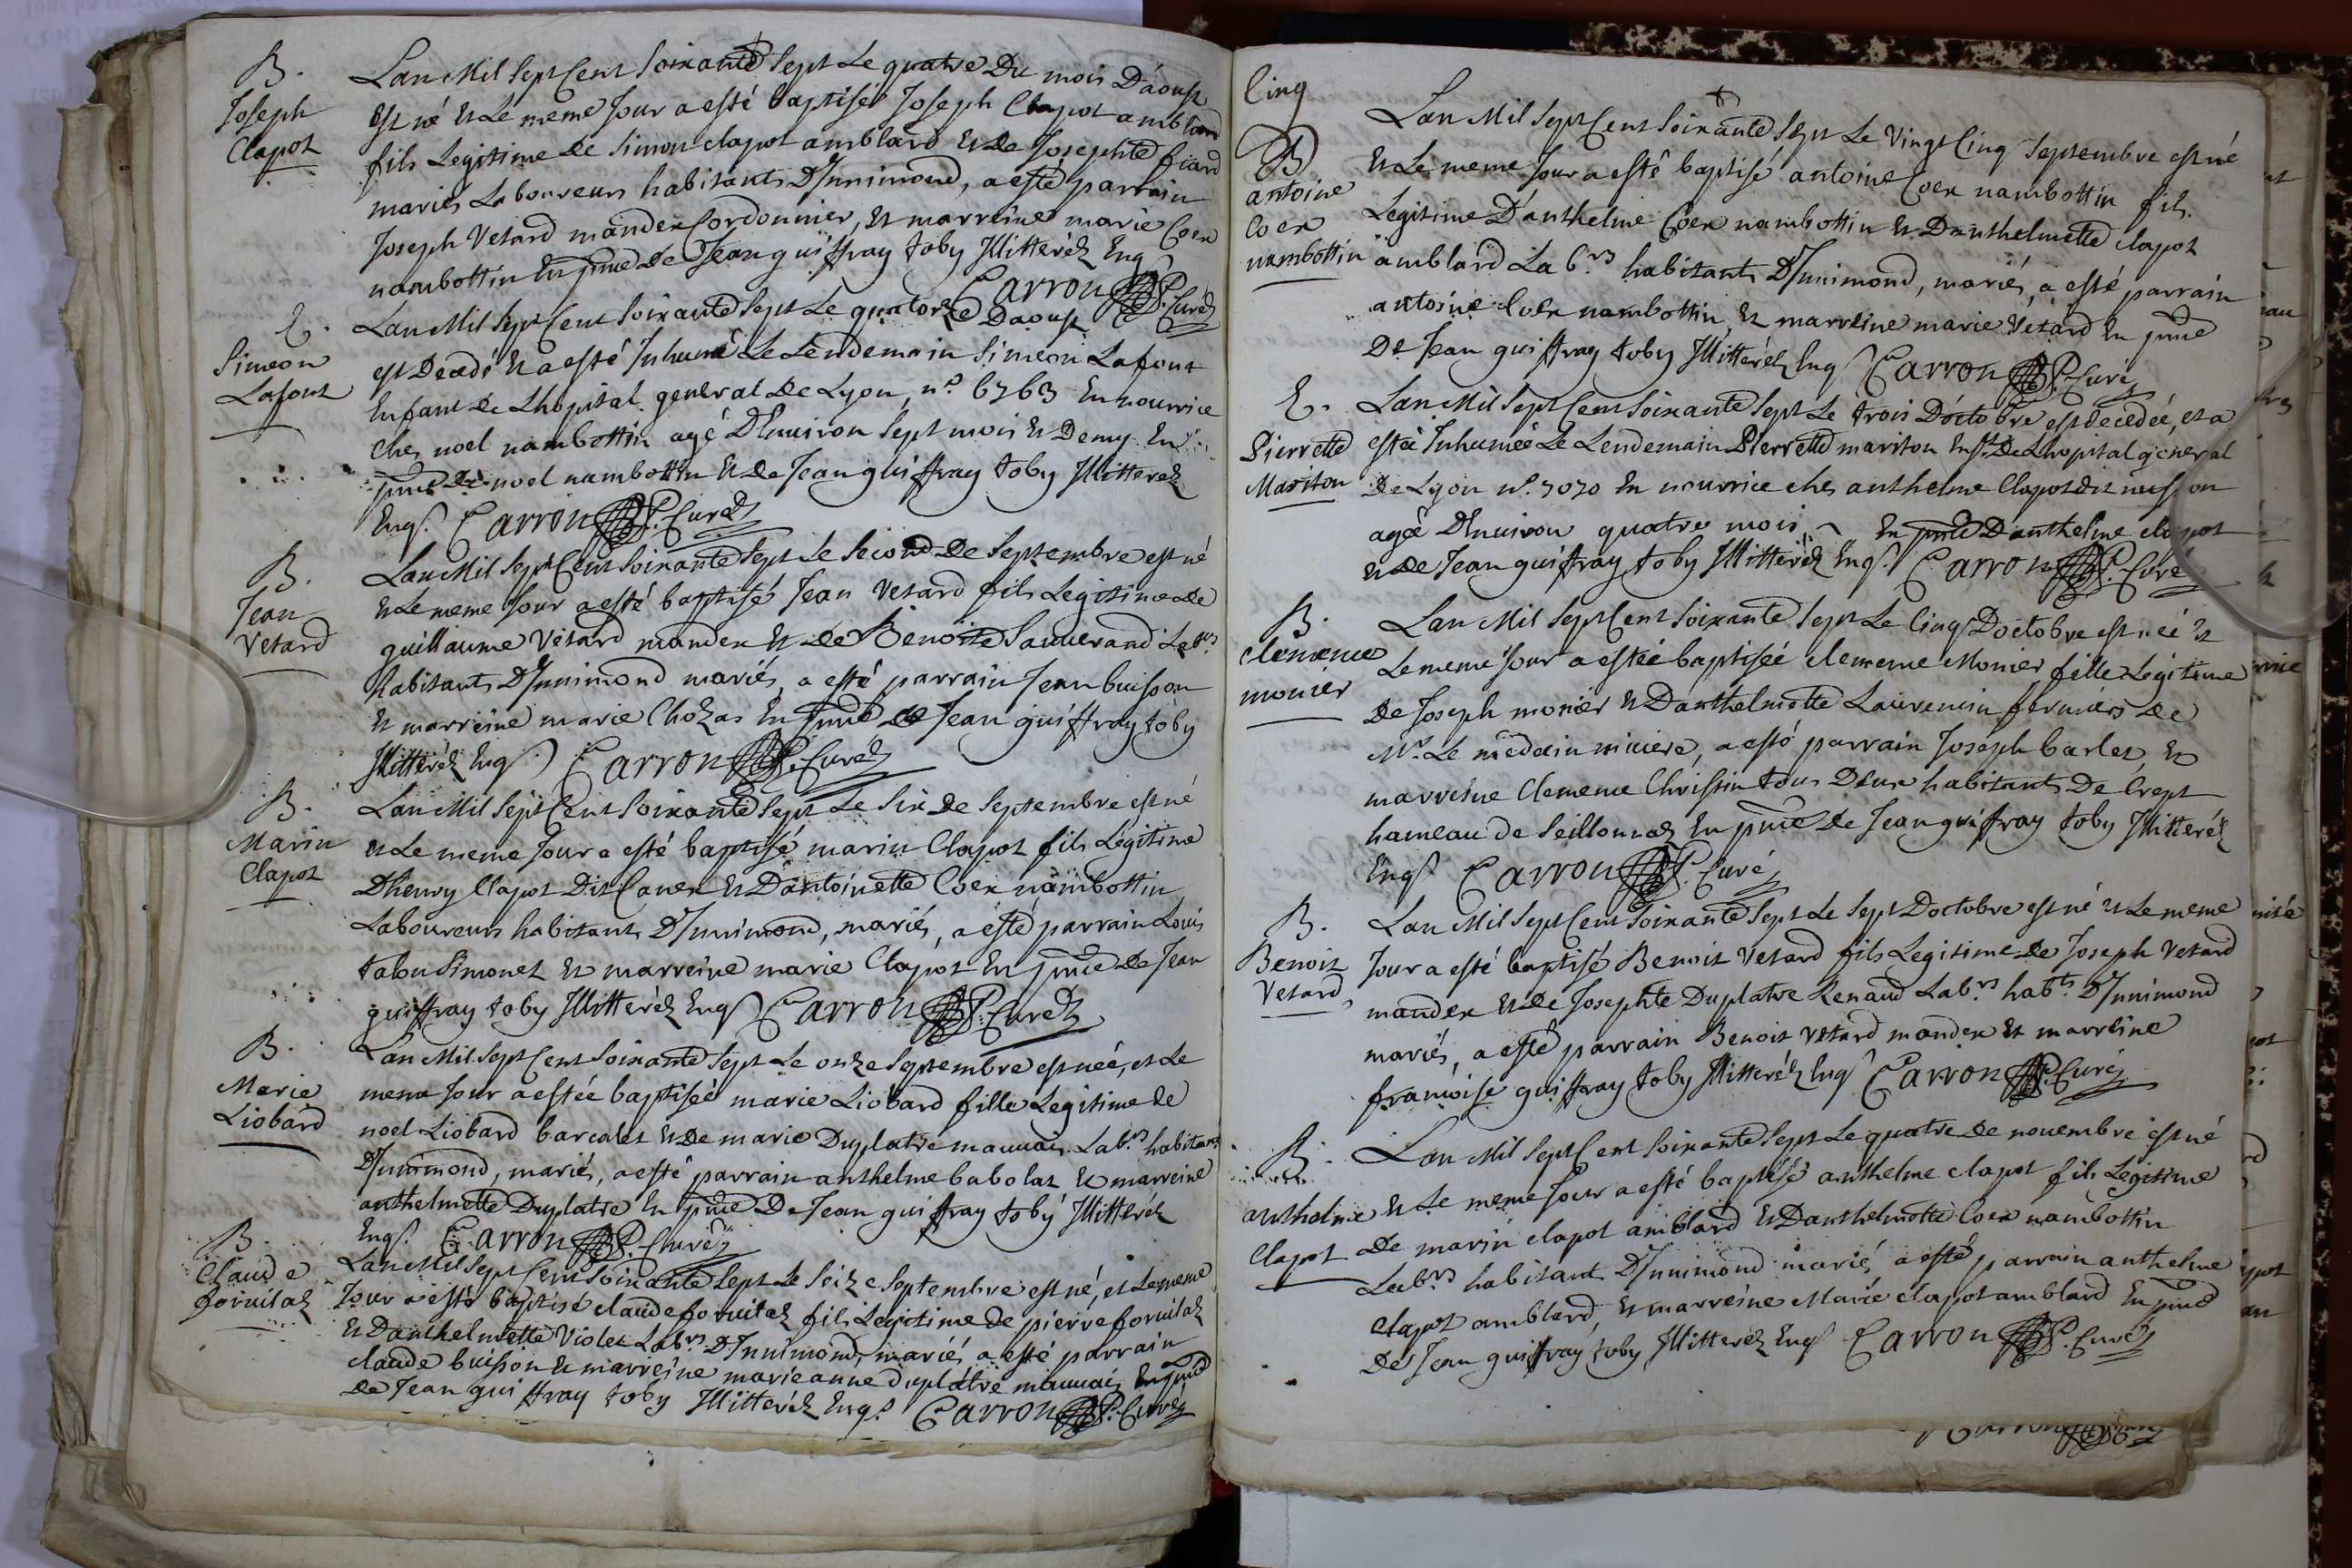 B.
Joseph
Clapot
Lan Mil Sept Cent Soixante Sept Le quatre Du mois Dáoust
Est né Et Le meme Jour a esté baptisé Joseph Clapot amblard
fils Legitime de Simon clapot amblard Et de Josephte fiard
mariés Laboureurs habitants D'Innimond, a esté parrain
Joseph Vetard mander Cordonnier, Et marreine marie Coex
nambottin En pnce de Jean guiffray toby Illitteréz Eng
Carron P. Curéz
E.
Simeon
Lafont
Lan Mil Sept Cent Soixante Sept Le quatorze Daoust
est Decedé Et a esté Inhumé Le Lendemain Simeon Lafont
Enfant de Lhopital general de Lyon, n.º 6763 En nourrice
Chez noel nambottin agé D'Environ Sept mois Et Demy En
pnce de noel nambottin Et de Jean guiffray toby Illitterez
Engs. Carron P. Curéz
B.
Jean
Vetard
Lan Mil Sept Cent Soixante Sept Le Second de Septembre est né
Et Le meme Jour a esté baptisé Jean Vetard fils Legitime de
guillaume Vetard mander Et de Benoite Sauverand Labrs
habitants D'Innimond mariés, a esté parrain Jean buisson
Et marreine marie Chozas En pnce de Jean guiffray toby
Illitteréz Engs Carron P. Curéz
B.
Marin
Clapot
Lan Mil Sept Cent Soixante Sept Le Six de Septembre est né
Et Le meme Jour a esté baptisé marin Clapot fils Légitime
Dhenry Clapot Dit Caner Et Dantoinette Coex nambottin
Laboureurs habitants D'Innimond, mariés, a esté parrain Louis
tabou Simonet Et marreine marie Clapot En pnce de Jean
guiffray toby Illitteréz Engs Carron P. Curéz
B.
Marie
Liobard
Lan Mil Sept Cent Soixante Sept Le onze Septembre est née, et Le
meme Jour a estée baptisée marie Liobard fille Legitime de
noel Liobard barcalet Et de marie Duplatre mauvais Labrs habitans
D'Innimond, mariés, a esté parrain anthelme babolat Et marreine
anthelmette Duplatre En pnce De Jean guiffray toby Illitteréz
Engs. Carron P. Curéz
B.
Claude
forvitaz
Lan Mil Sept Cent Soixante Sept Le Seize Septembre est né, et Le meme
Jour a esté baptisé claude forvitaz fils Legitime de pierre forvitaz
Et Danthelmette Violet Labrs D'Innimond, mariés a esté parrain
claude buisson Et marreine marieanne duplatre mauvais En pnce
de Jean guiffray toby Illitteréz Engs. Carron P. Curéz
Cinq
B
antoine
Coex
nambottin
Lan Mil Sept Cent Soixante Sept Le Vingt Cinq Septembre est né
Et Le meme Jour a esté baptisé antoine Coex nambottin fils
Legitime D'anthelme Coex nambottin Et Danthelmette clapot
amblard Labrs habitants D'Innimond, mariés, a esté parrain
antoine Coex nambottin, Et marreine marie Vetard En pnce
De Jean guiffray toby Illitteréz Engs Carron P. Curéz
E.
Pierrette
Mariton
Lan Mil Sept Cent Soixante Sept Le trois Doctobre est decedée, et a
estée Inhumée Le Lendemain Pierrette mariton Enft. De Lhopital géneral
de Lyon nº. 7070 En nourrice chez anthelme Clapot dit
agée D'Environ quatre mois En pnce D'anthelme clapot
et de Jean guiffray toby Illitteréz Engs. Carron P. Curé
B.
clemence
monier
Lan Mil Sept Cent Soixante Sept Le Cinq Doctobre est née Et
Le meme Jour a estée baptisée clemence Monier fille Légitime
De Joseph monier Et Danthelmette Laurencin fermiers de
Mr. Le medecin niviere, a esté parrain Joseph barlet, Et
marreine Clemence Christin tous Deux habitants De Crept
hameau de Seillonnaz En pnce de Jean guiffray toby Illitteréz
Engs Carron P. Curéz
B.
Benoit
Vetard
Lan Mil Sept Cent Soixante Sept Le Sept Doctobre est né Et Le meme
Jour a esté baptisé Benoit Vetard fils Legitime de Joseph Vetard
mander Et de Josephte Duplatre Renaud Labrs habts D'Innimond
mariés, a esté parrain Benoit Vetard mander Et marreine
francoise guiffray toby Illitteréz Engs Carron P. Curéz
B.
anthelme
Clapot
Lan Mil Sept Cent Soixante Sept Le quatre de novembre est né
Et Le meme Jour a esté baptisé anthelme clapot fils Legitime
De marin clapot amblard Et Danthelmette Coex nambottin
Labrs habitants D'Innimond mariés a esté parrain anthelme
clapot amblard, Et marreine Marie clapot amblard En pnce
De Jean guiffray toby Illitteréz Engs Carron P. Curéz